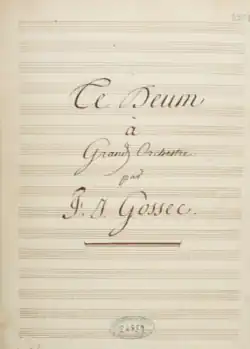 Te Deum
à
Grand Orchestre
par
F. J. Gossec.